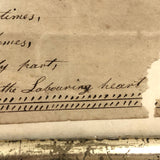 times,
emes,
y part,
the Labouring heart